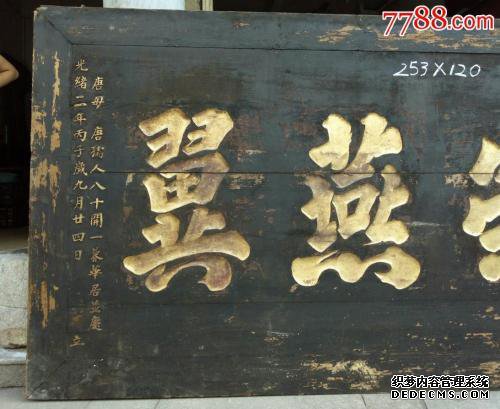 7788.com
253×120
燕翼
唐母 唐孺人八十開一 華居並慶
光緒二年丙子歲九月廿四日 立
织梦内容管理系统
DEDECMS.COM